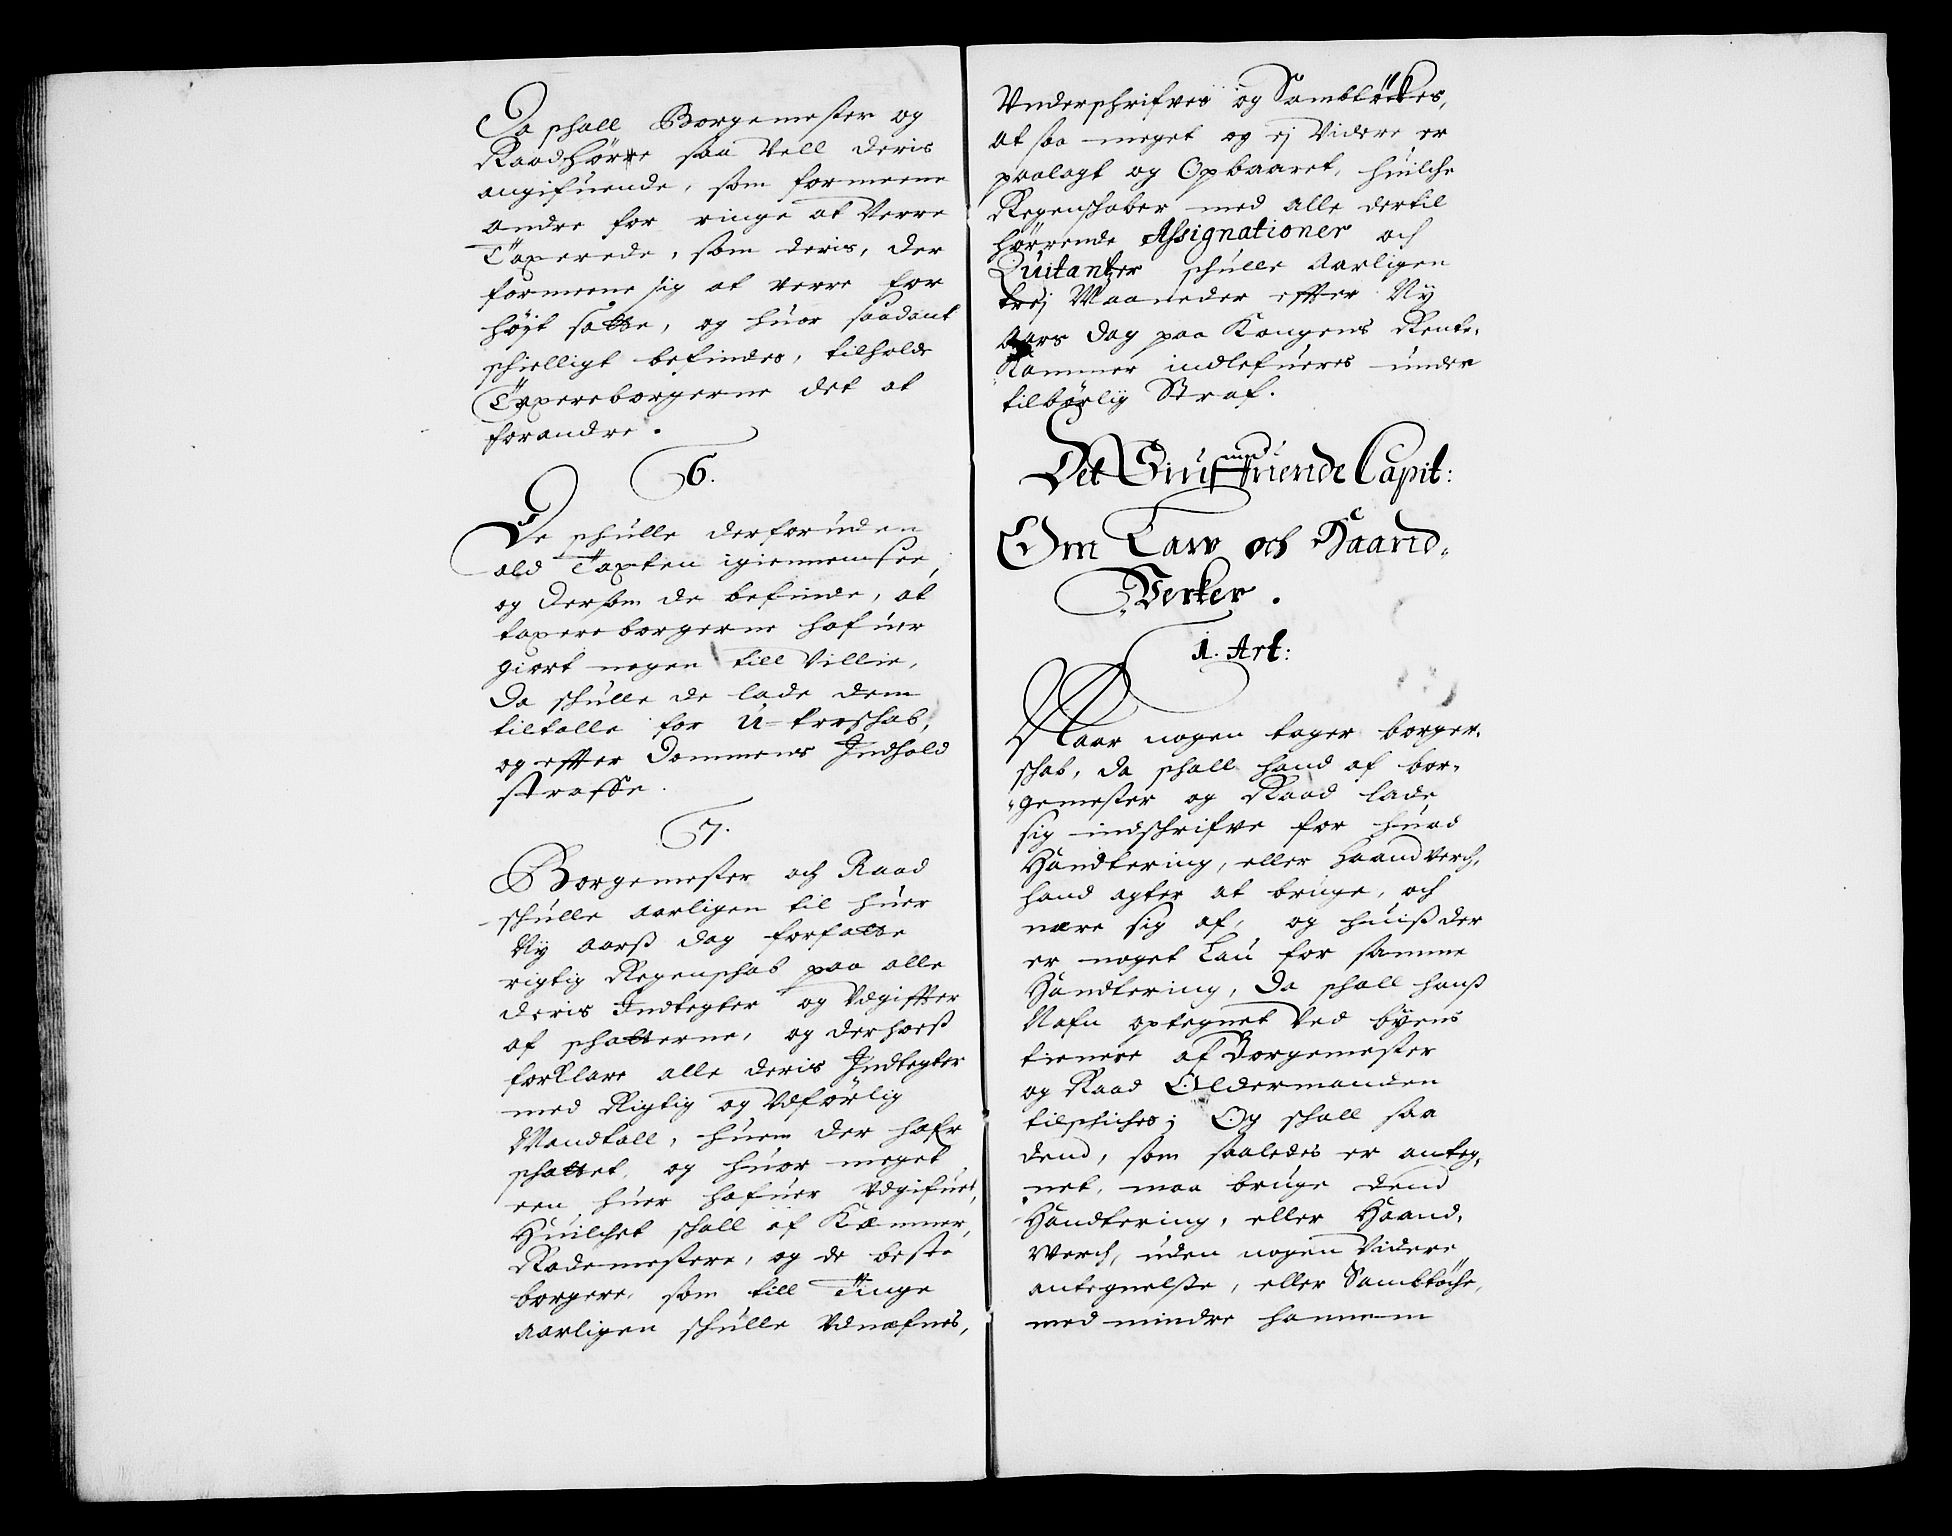 Da schall Borgemester og
Raad hörre saa Vell deris
angifuende, som formeene
andre for ringe at Verre
Taxerede, som deris, der
formeene sig at verre for
høyt satte, og huor saadant
schielligt befindes, tilholde
Taxereborgerne det at
forandre.
6.
De schulle derforuden
ald Taxten igiennemsee,
og dersom de befinde, at
taxereborgerne hafuer
giort nogen till Villie,
Da schulle de lade dem
tiltalle for U-troschab,
og effter Dommens Indhold
straffe.
7.
Borgemester och Raad
schulle aarligen til huer
Ny aarß dag forfatte
rigtig Regenschab paa alle
deris Indtegter og Udgiffter
af schatterne, og derhoeß
forklare alle deris Indtegter
med Rigtig og Udförlig
Mandtall, huem der hafr
schattet, og huor meget
een huer hafuer Udgifuet,
Huilchet schall af Kæmner,
Rodemestere, og de beste
borgere, som till Tinge
aarligen schulle Udnæfnes,
Underschrifves og Sambtöckes,
at saa meget og ej Videre er
paalagt og Opbaaret, huilche
Regenschaber med alle dertil
hörrende Assignationer och
Quitantzer schulle Aarligen
trej Maaneder effter Ny
Aars dag paa Kongens Rente-
Kammer indlefueres under
tilbörlig Straf.
Det Siuffuende Capit:
Om Law och Haand-
Verker.
1. Art:
Naar nogen tager borger-
schab, da schall hand af bor-
gemester og Raad lade
sig indschrifve for huad
Handtering, eller haandverch,
hand agter at bruge, och
nære sig af, og huiß der
er noget Lau for samme
Handtering, da schall hanß
Nafn optegnet Ved byens
tienere af Borgemester
og Raad Oldermanden
tilschiches; Og schall saa
dend, som saaledes er anteg-
net, maa bruge dend
Handtering, eller Haand-
werch, uden nogen Videre
antegnelse, eller Sambtöche,
med mindre hannem